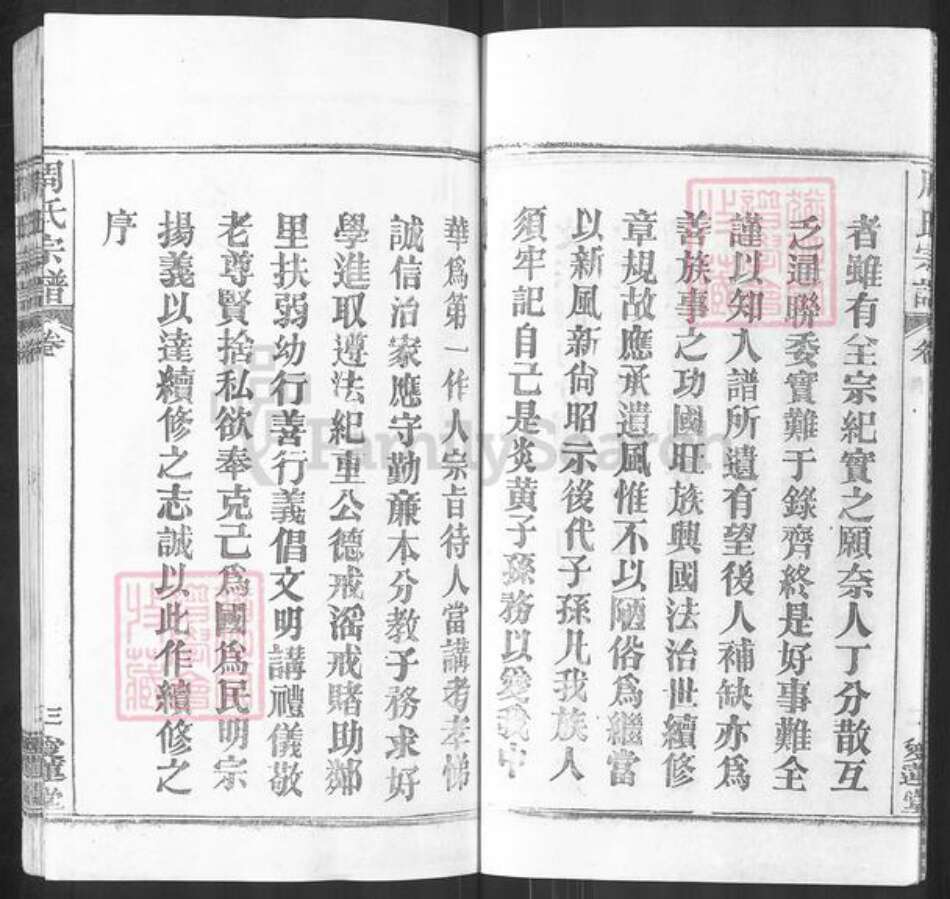 者雖有全宗紀實之願奈人丁分散互
乏通聯委實難于錄齊終是好事難全
謹以知入譜所遺有望後人補缺亦爲
善族事之功國旺族興國法治世續修
章規故應承遺風惟不以陋俗爲繼當
以新風新尙昭示後代子孫凡我族人
須牢記自己是炎黃子孫務以愛我中
華爲第一作人宗旨待人當講孝孝悌
誠信治家應字勤亷本分教子務求好
學進取遵法紀重公德戒滛戒賭助鄰
里扶弱幼行善行義倡文明講禮儀敬
老尊賢捨私欲奉克己爲國爲民明宗
揚義以達續修之志誠以此作續修之
序
周氏宗譜
卷
三
愛蓮堂
FamilySearch